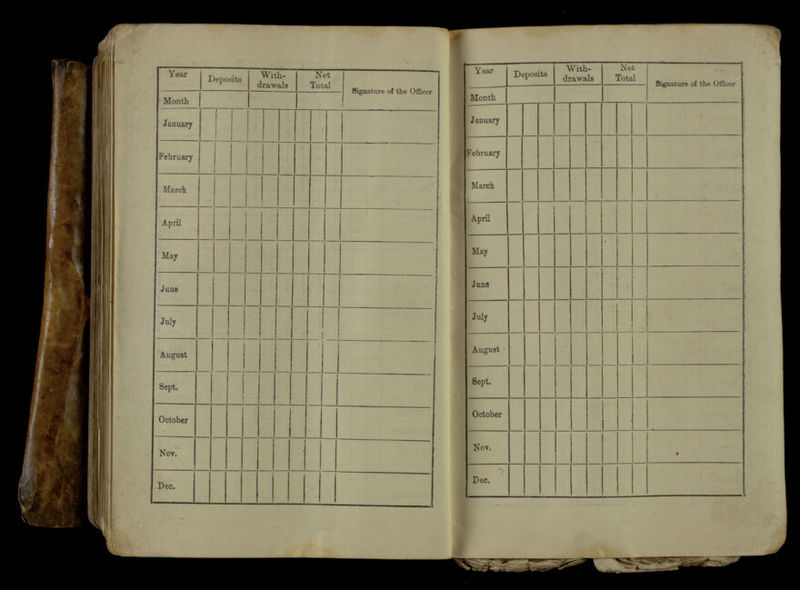 Year Deposits With-drawals Net Total Signature of the Officer
Month
January
February
March
April
May
June
July
August
Sept.
October
Nov.
Dec.
Year Deposits With-drawals Net Total Signature of the Officer
Month
January
February
March
April
May
June
July
August
Sept.
October
Nov.
Dec.